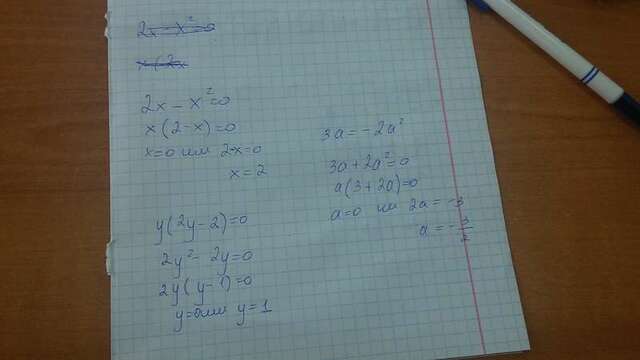 2x - x² = 0
2x - x² = 0
x(2-x) = 0
x=0 или 2-x=0
x = 2
y(2y-2)=0
2y² - 2y = 0
2y(y-1)=0
y=0 или y=1
3a = -2a²
3a + 2a² = 0
a(3+2a)=0
a=0 или 2a = -3
a = -3/2